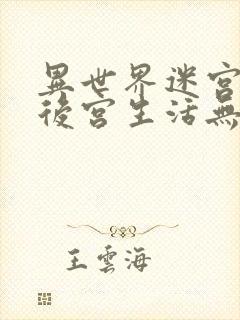 異世界迷宮
後宮生活無
王雲海